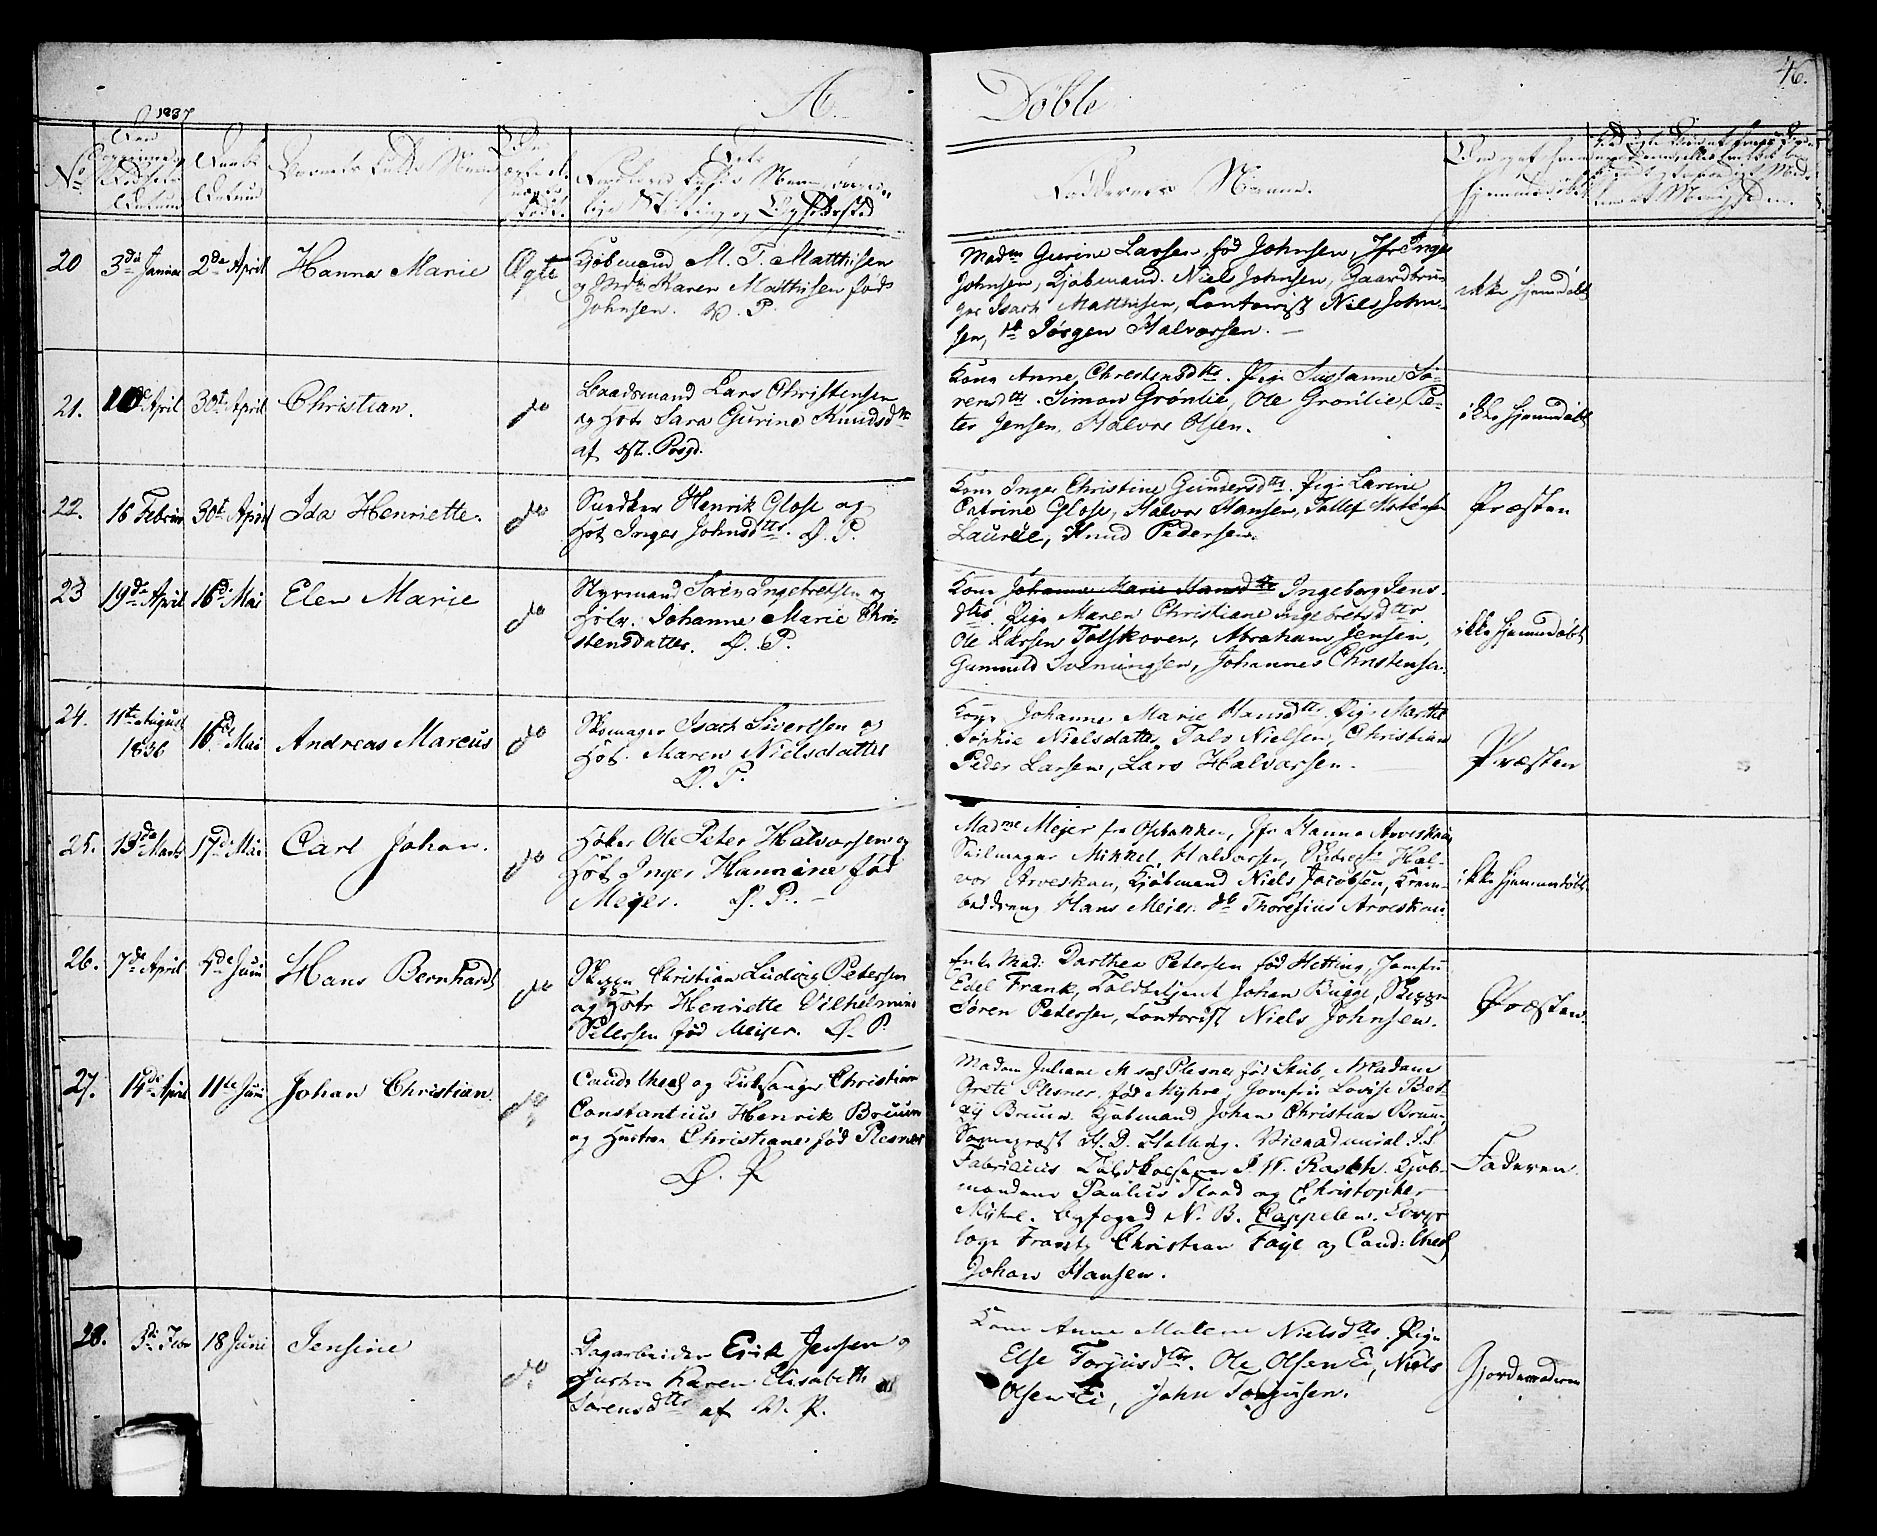 A. Döbte
46.
1837
No
Barnets fulde Navn
Faddernes Navne.
20
3de Januar
2de April
Hanna Marie
Ægte
Kjöbmand M. F. Matthisen
og Mdm Karen Matthisen föd
Johnsen. V. P.
Madm Gurine Larsen föd Johnsen, Jfr Inger
Johnsen, Kjöbmand Niels Johnsen, Gaardbru-
ger Isach Matthisen, Contorist Niels John-
sen, do Jörgen Halvorsen.
ikke hjemmedöbt
21.
10de April
30te April
Christian.
do
Baadsmand Lars Christensen
og Hot Sara Gurine Knudsdtr
af öst. Prsgd.
Kone Anne Christensdtr. Pige Susanne Sö-
rensdtr. Simon Grönlie, Ole Grönlie, Pe-
ter Jensen, Halvor Olsen.
ikke hjemmedöbt
22.
16 Februar
30te April
Ida Henriette.
do
Snedker Henrik Glose og
Hot Inger Johnsdtr. Ö. P.
Kone Inger Christine Gundersdtr. Pige Larine
Catrine Glose, Halvor Hansen, Tallef
Knud Pedersen.
Præsten
23
19de April
16de Mai
Elen Marie
do
Styrmand Sören Ingebretsen og
Hot. Johanne Marie Chri-
stensdatter. Ö. P.
Kone Johanne Marie Hansdtr Ingeborg Jens-
dtr, Pige Maren Christiane Ingebretsdtr.
Ole Larsen Tolskoven, Abraham Jensen,
Gunnuld Svenungsen, Johannes Christensen.
ikke hjemmedöbt
24.
11te August
1836
16de Mai
Andreas Marcus
do
Skomager Isach Sivertsen og
Hot. Maren Nielsdatter
Ö. P.
Kone Johanne Marie Hansdtr. Pige Marthe
Sophie Nielsdatter, Tals Nielsen, Christian
Peder Larsen, Lars Halvorsen.
Præsten
25.
13de Marts
17de Mai
Carl Johan.
do
Höker Ole Peter Halvorsen og
Hot Inger Hannine föd
Meijer. Ö. P.
Madme Meijer fra Osebakken, Jfr Hanna Arveskau
Seilmager Mikkel Halvorsen, Hal-
vor Arveskau, Kjöbmand Niels Jacobsen, Kram-
boddreng Hans Meier. do Thoresius Arveskau
ikke hjemmedöbt
26.
7de April
4de Juni
Hans Bernhardt
do
Skipper Christian Ludvig Petersen
og Hstr Henriette Vilhelmine
Petersen föd Meijer. Ö. P.
Enke Mad: Dorthea Petersen föd Hetting, Jomfru
Edel Frank, Toldbetjent Johan Bugge, Skipper
Sören Petersen, Contorist Niels Johnsen.
Præsten
27.
14de April
11te Juni
Johan Christian.
do
Cand. theol og Kirkesanger Christian
Constantius Henrik Bruun
og Hustru Christiane föd Plesner
Ö. P.
Madam Juliane M sal Plesner föd Skib, Madame
Grete Plesner föd Myhre, Jomfru Lovise Bet-
zy Bruun. Kjöbmand Johan Christian Bruun
Sognepræst H. D. Halling. Viceadmiral
Fabricius Toldkasserer J. W. Rasch. Kjöb-
mændene Paulus Flood og Christopher
Myhre. Byfoged N. B. Cappelen. Corps
læge Frantz Christian Faye og Cand: theol
Johan Hansen.
Faderen.
28.
18 Juni
Jensine
do
Dagarbeider Erik Jensen og
Hustru Karen Elisabeth
Sörensdtr af V. P.
Kone Anne Malene Nielsdtr. Pige
Else Torjusdtr. Ole Olsen Ei, Niels
Olsen Ei, John Torjusen.
Gjordemoderen